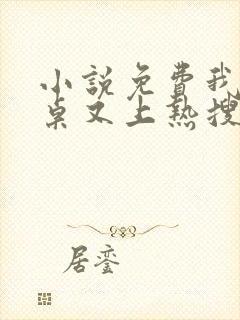 小说免费我
桌又上热搜
居銮